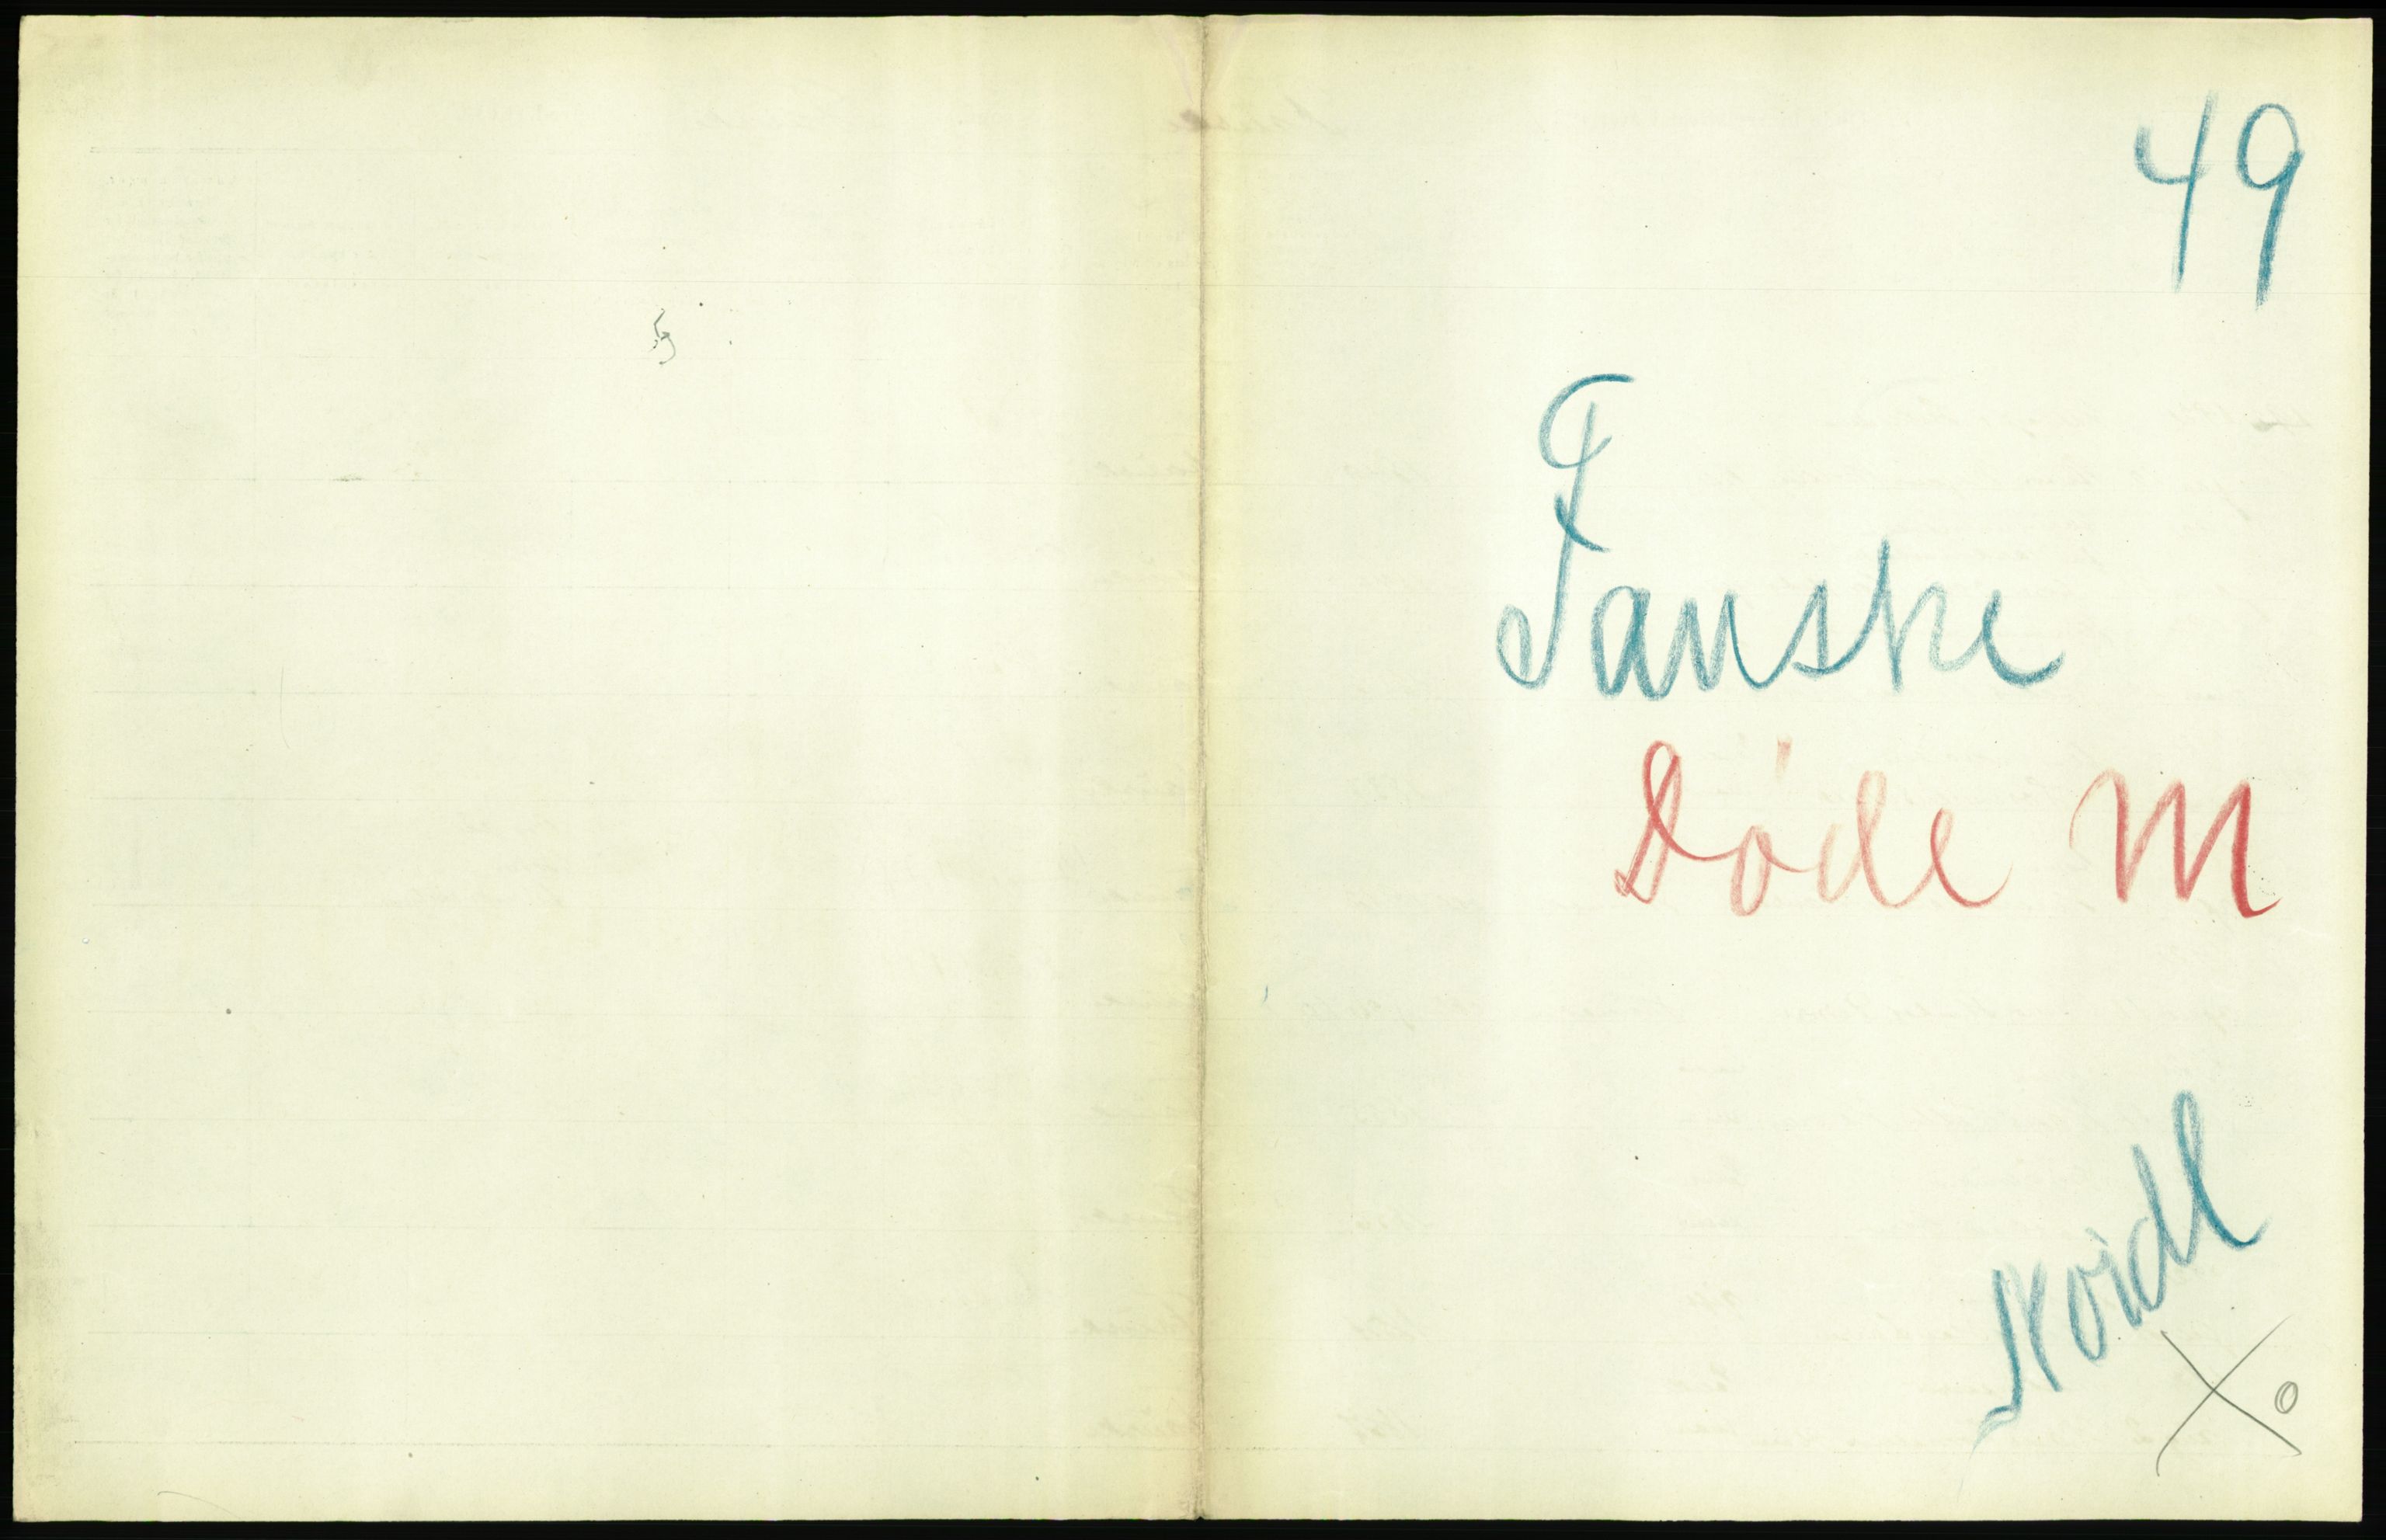 49
Fauske
Døde M
Nordl